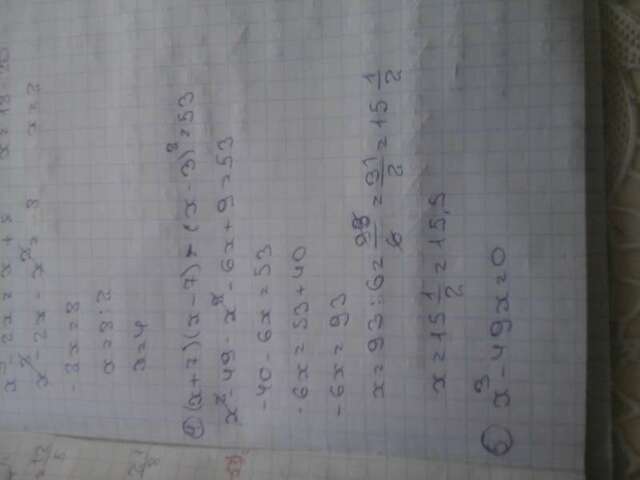 x² - 2x = x² + 8 x = 18 - 20
x² - 2x - x² = -8 x = 2
-2x = 8
x = 8 : 2
x = 4
④ (x+7)(x-7) - (x-3)² = 53
x² - 49 - x² - 6x + 9 = 53
-40 - 6x = 53
-6x = 53 + 40
-6x = 93
x = 93 : 6 = 93/6 = 31/2 = 15 1/2
x = 15 1/2 = 15,5
⑤ x³ - 49x = 0